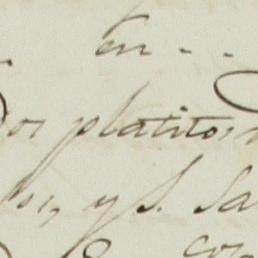 en - - -
os platitos
os, y S. Sa